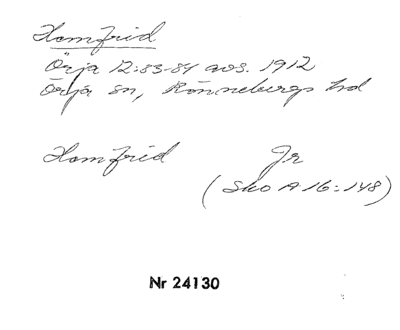 Hemfrid
Örja 12:83-84 avs. 1912
Örja sn, Rönnebergs hd
Hemfrid Jr
(Sko A 16:148)
Nr 24130